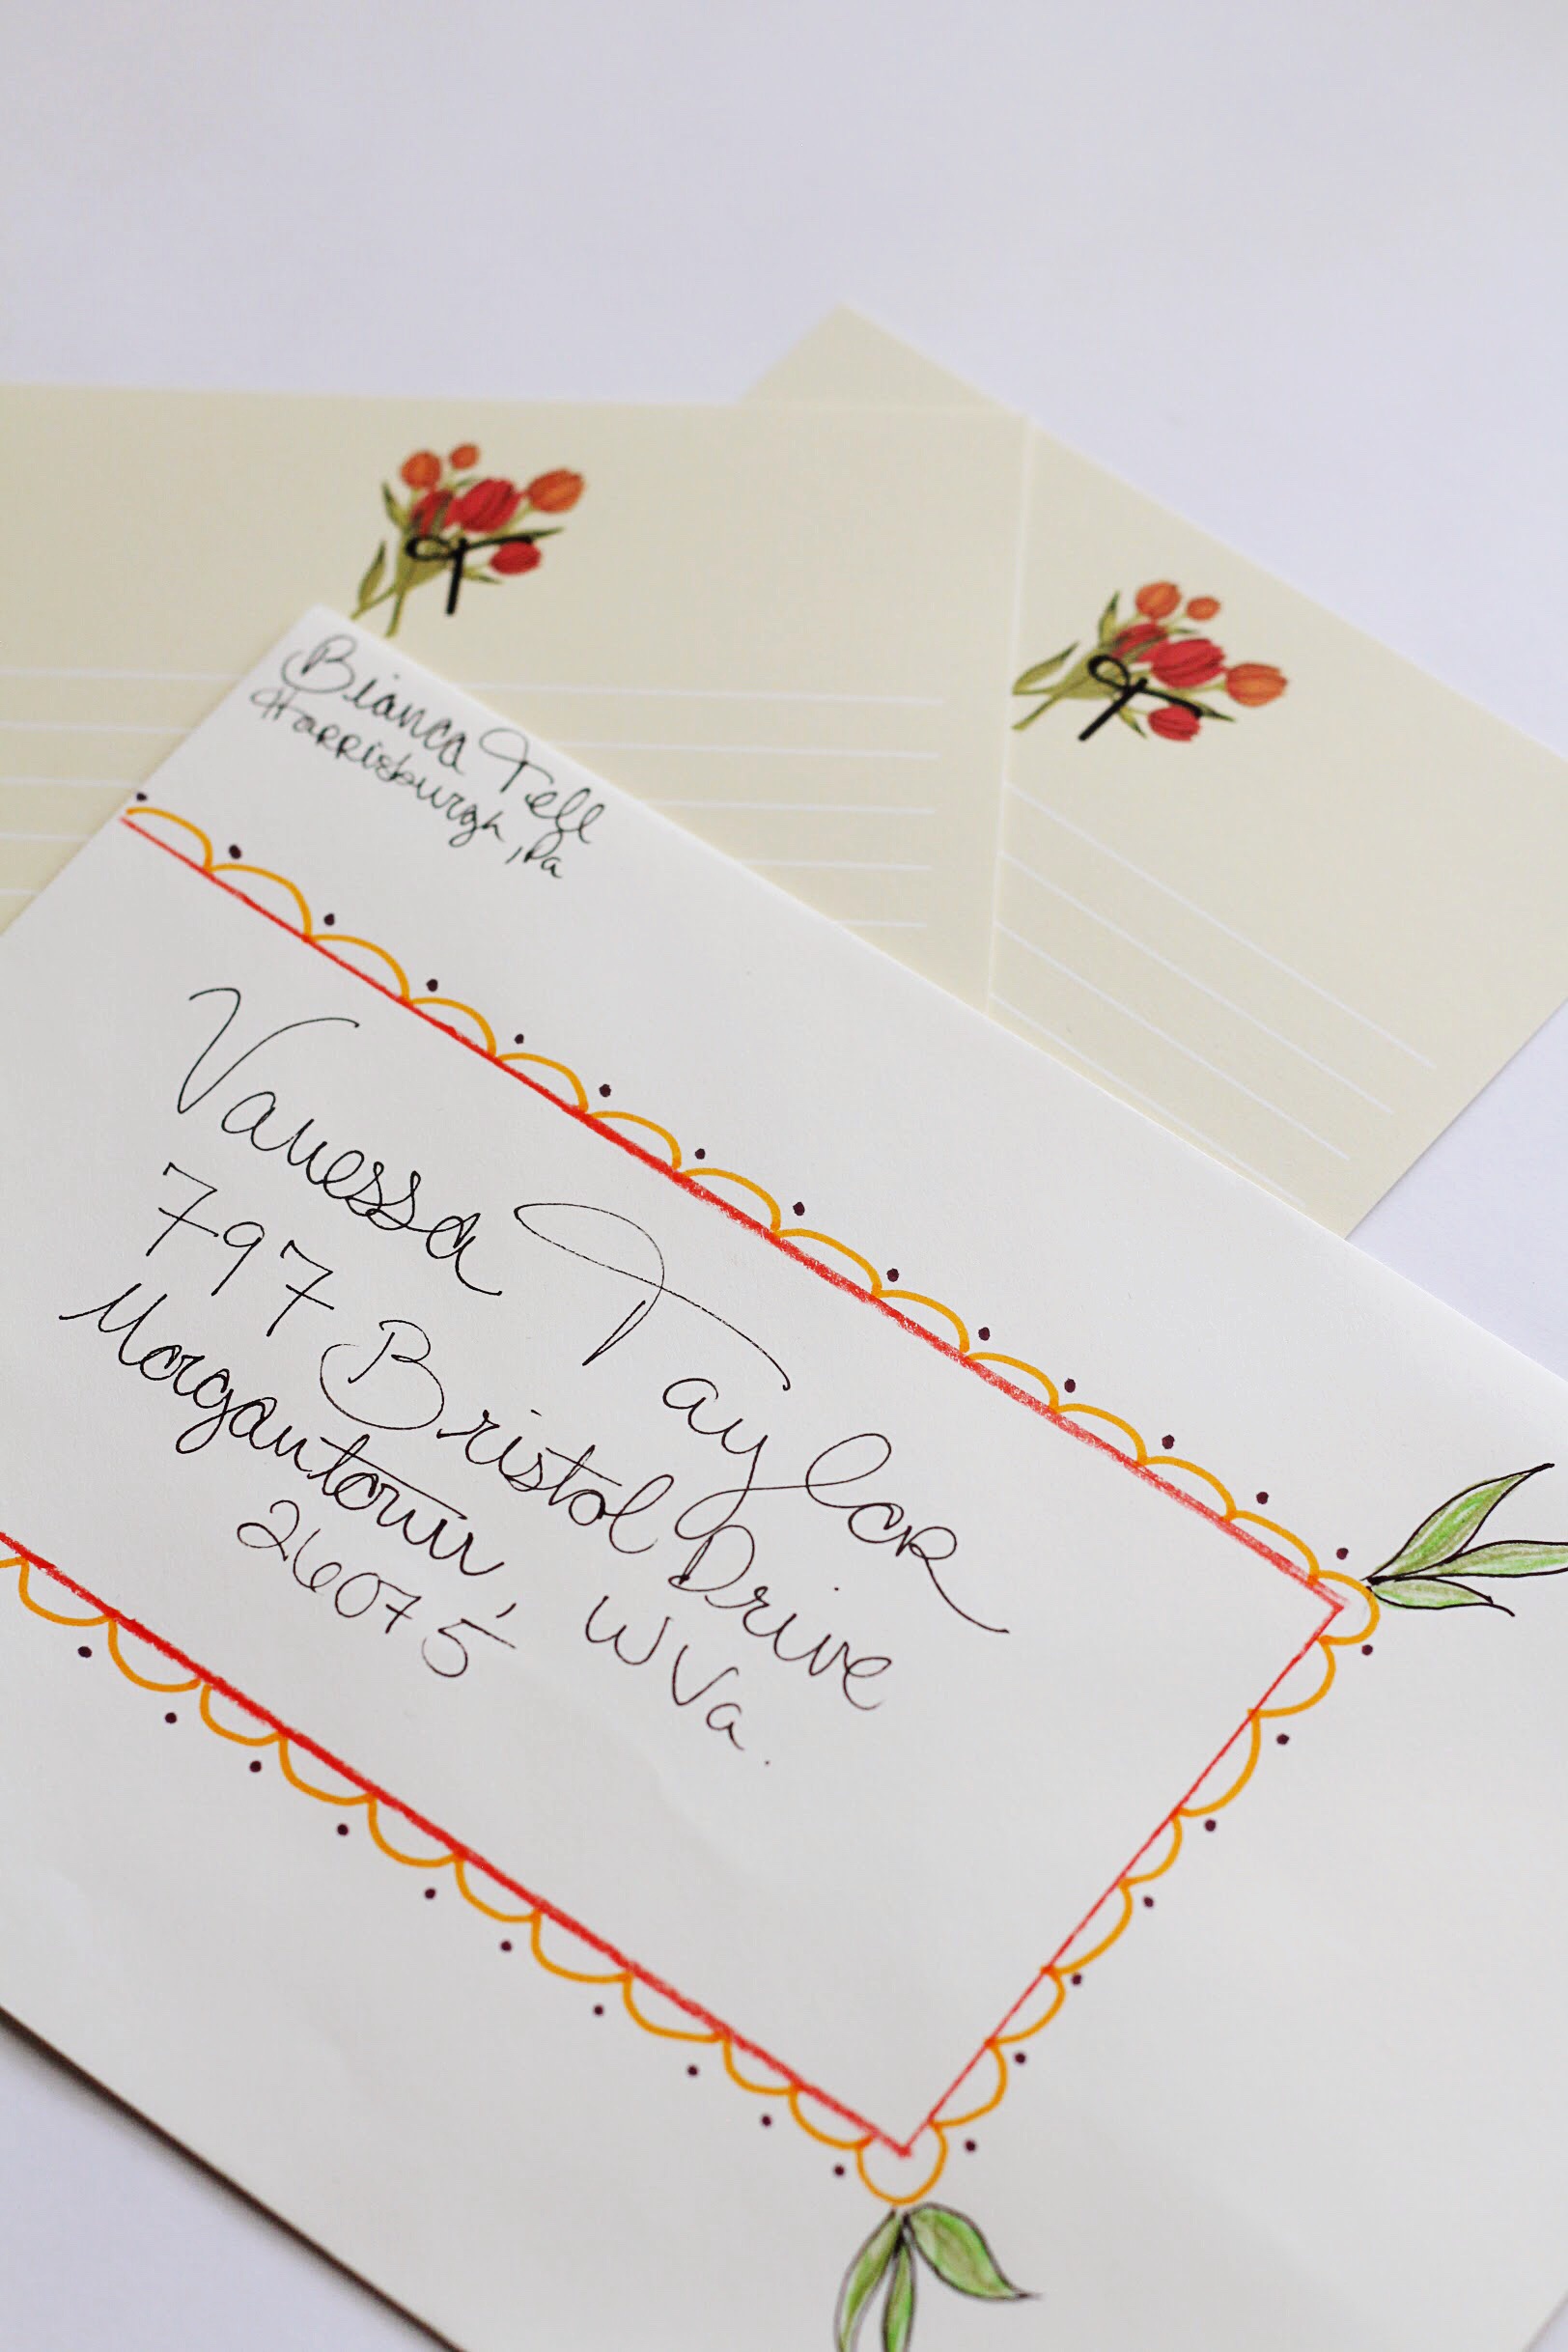 Bianca Tell
Harrisburgh, Pa
Vanessa Taylor
797 Bristol Drive
Morgantown, W Va.
26075